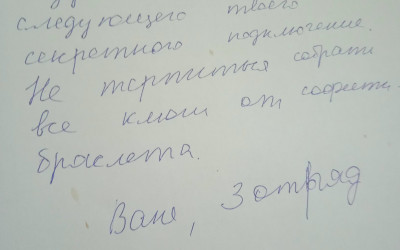 следующего твоего
секретного подключения.
Не терпится собрать
все ключи от
браслета.
Ваш, 3 отряд